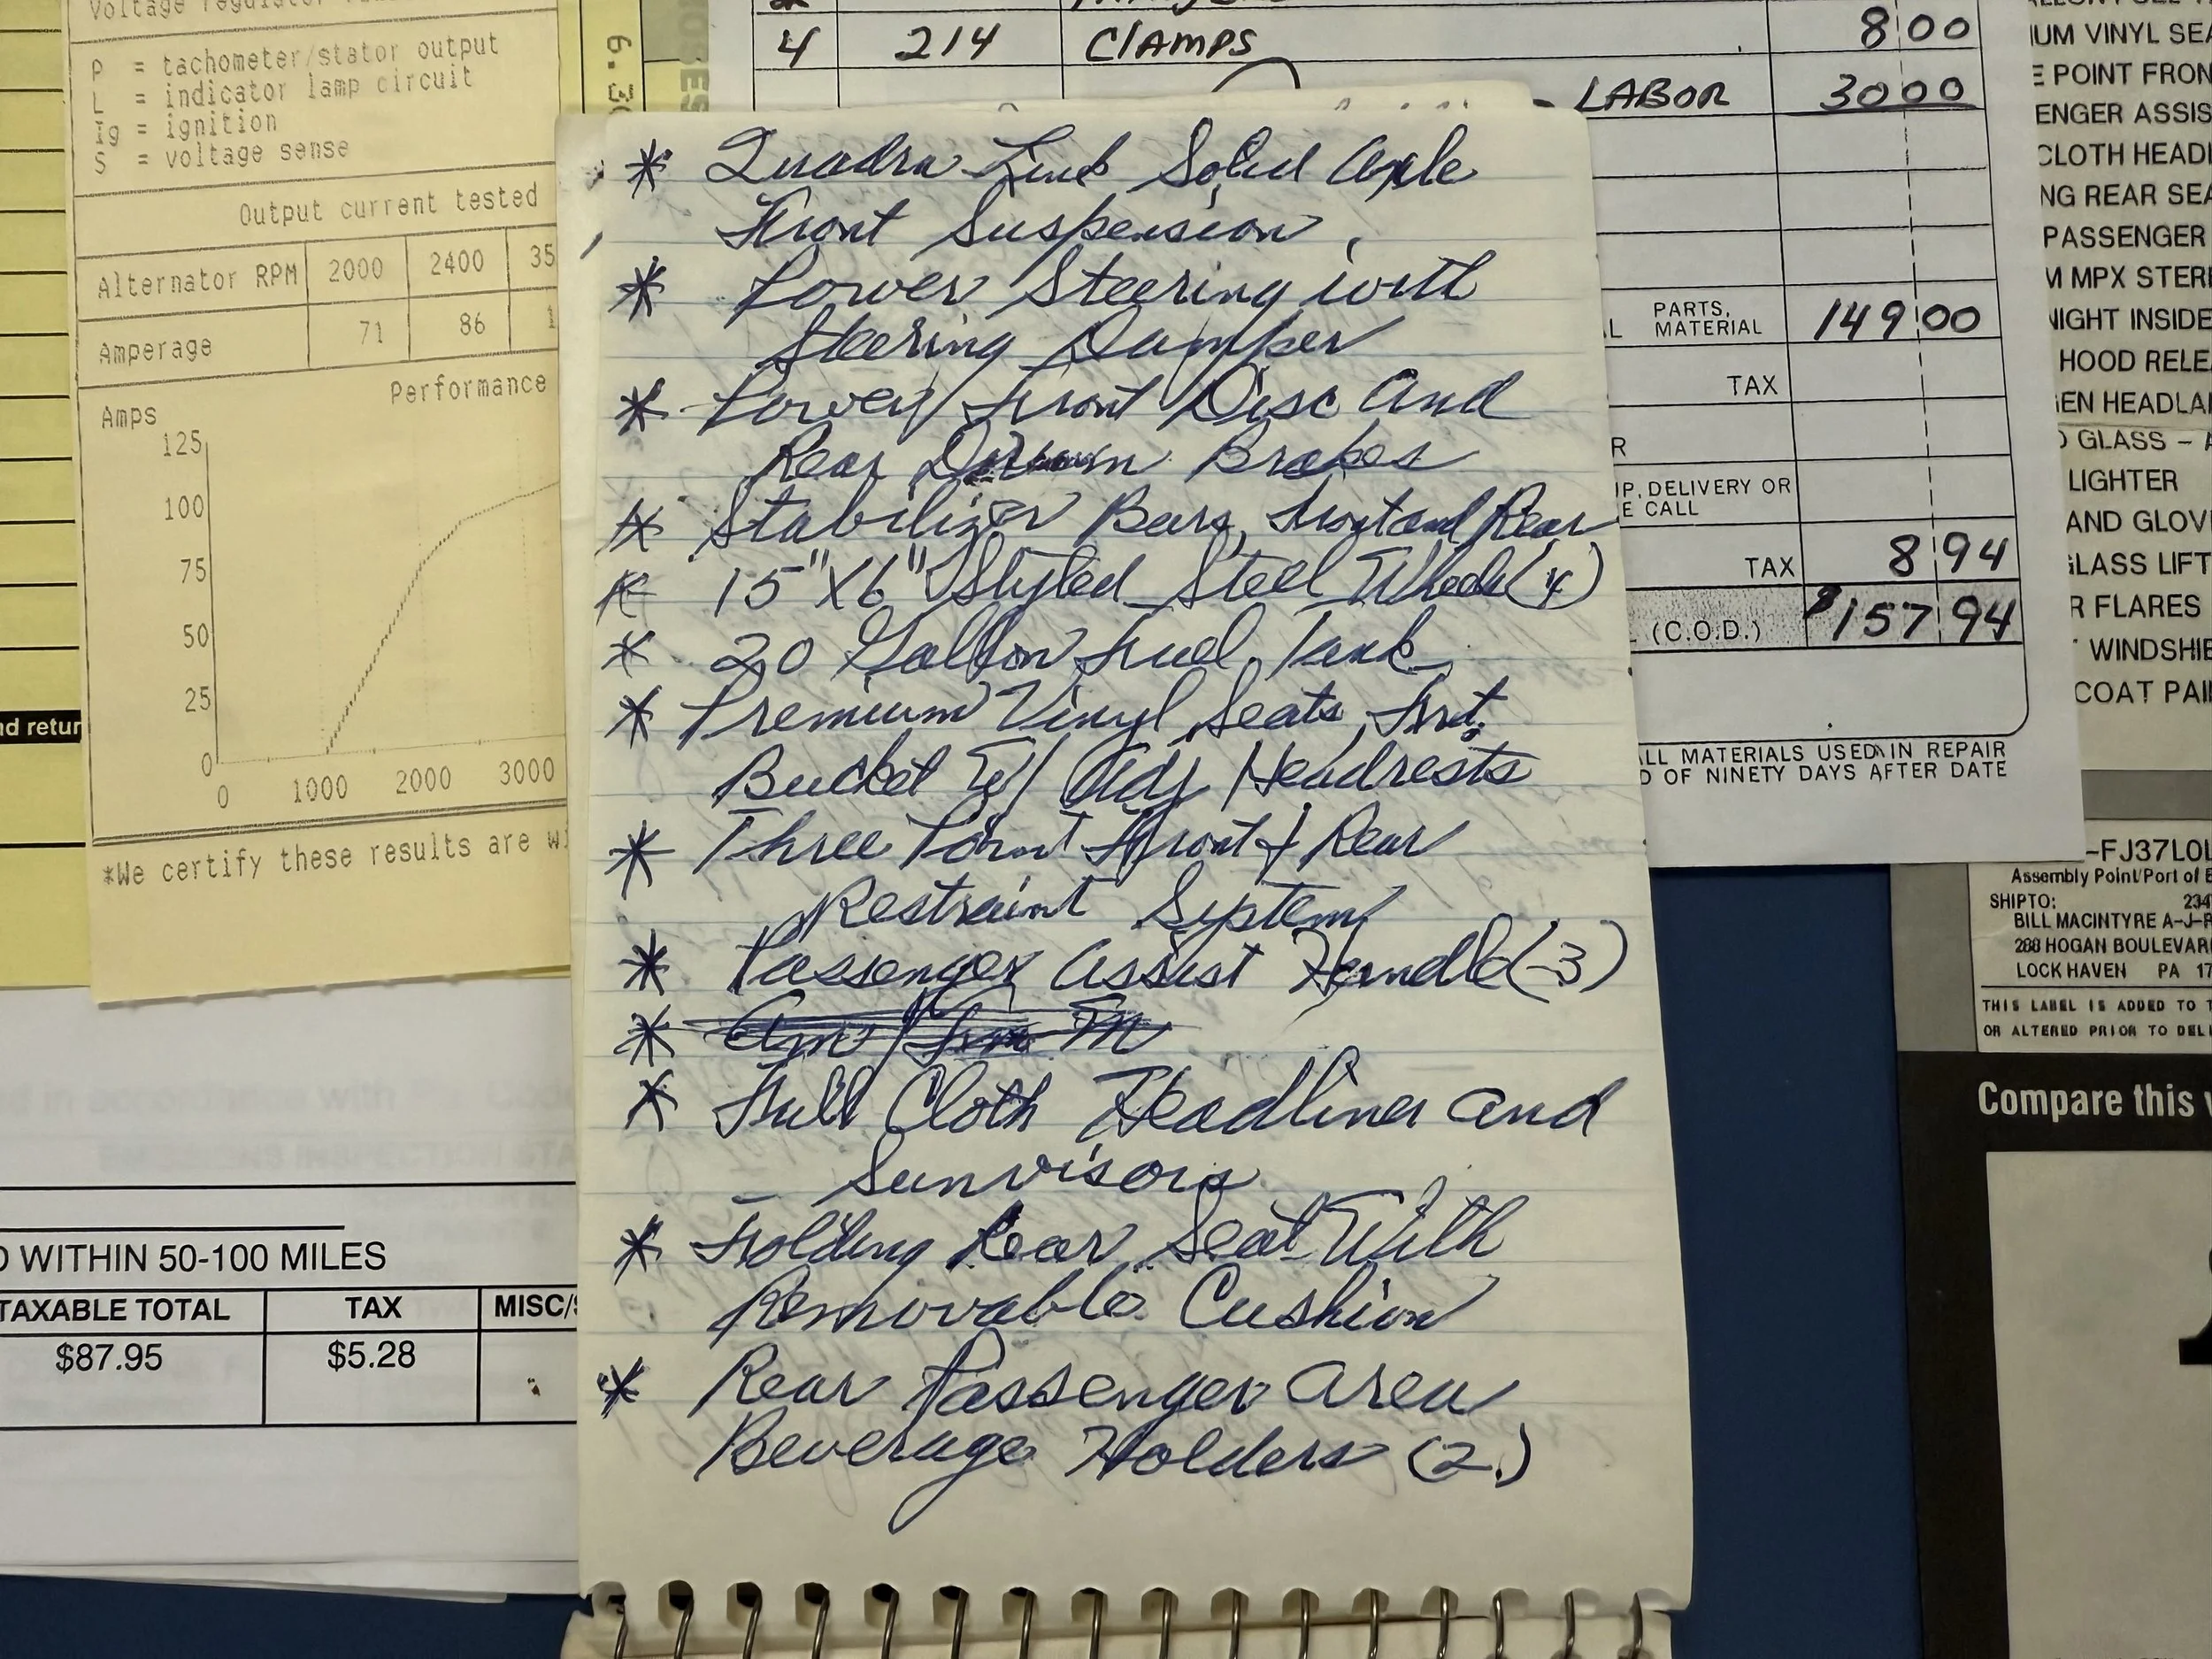 Voltage regulator
P = tachometer/stator output
L = indicator lamp circuit
Ig = ignition
S = voltage sense
Output current tested
Alternator RPM 2000 2400 35
Amperage 71 86 1
Performance
Amps
125
100
75
50
25
0
0 1000 2000 3000
*We certify these results are wi
nd retur
6.30
D WITHIN 50-100 MILES
TAXABLE TOTAL TAX MISC/
$87.95 $5.28
4 214 Clamps 8 00
- LABOR 30 00
PARTS,
MATERIAL 149 00
TAX
R
UP, DELIVERY OR
E CALL
TAX 8 94
L (C.O.D.) $157 94
ALL MATERIALS USED IN REPAIR
D OF NINETY DAYS AFTER DATE
* Quadra Link Solid Axle
Front Suspension
* Power Steering with
Steering Damper
* Power Front Disc And
Rear Drum Brakes
* Stabilizer Bars, Front and Rear
* 15"X6" Styled Steel Wheels (4)
* 20 Gallon Fuel Tank
* Premium Vinyl Seats, Frt.
Bucket W/ Adj Headrests
* Three Point Front & Rear
Restraint System
* Passenger Assist Handle (3)
* Am/Fm M
* Full Cloth Headliner and
Sunvisors
* Folding Rear Seat With
Removable Cushion
* Rear Passenger Area
Beverage Holders (2)
IUM VINYL SEA
E POINT FRON
ENGER ASSIS
CLOTH HEADI
NG REAR SEA
PASSENGER
M MPX STERE
NIGHT INSIDE
HOOD RELEA
EN HEADLAI
D GLASS - A
LIGHTER
AND GLOV
GLASS LIFT
R FLARES
WINDSHIE
COAT PAI
-FJ37L0L
Assembly Point/Port of E
SHIP TO: 234
BILL MACINTYRE A-J-R
288 HOGAN BOULEVAR
LOCK HAVEN PA 17
THIS LABEL IS ADDED TO T
OR ALTERED PRIOR TO DELI
Compare this v